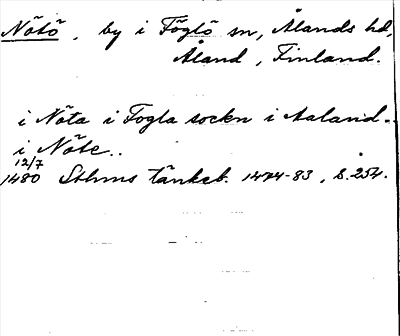 Nötö, by i Föglö sn, Ålands hd,
Åland, Finland.
i Nöta i Fogla sockn i Aaland..
i Nöte..
12/7
1480 Sthms tänkeb. 1474-83, s. 254.